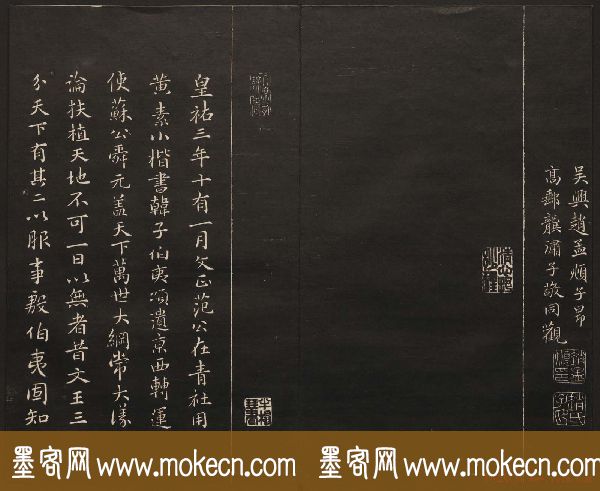 吳興趙孟頫子昂
高郵龔璛子敬同觀
皇祐三年十有一月文正范公在青社用
黃素小楷書韓子伯夷頌遺京西轉運
使蘇公舜元蓋天下萬世大綱常大議
論扶植天地不可一日以無者昔文王三
分天下有其二以服事殷伯夷固知
墨客网 www.mokecn.com 墨客网 www.mokecn.com